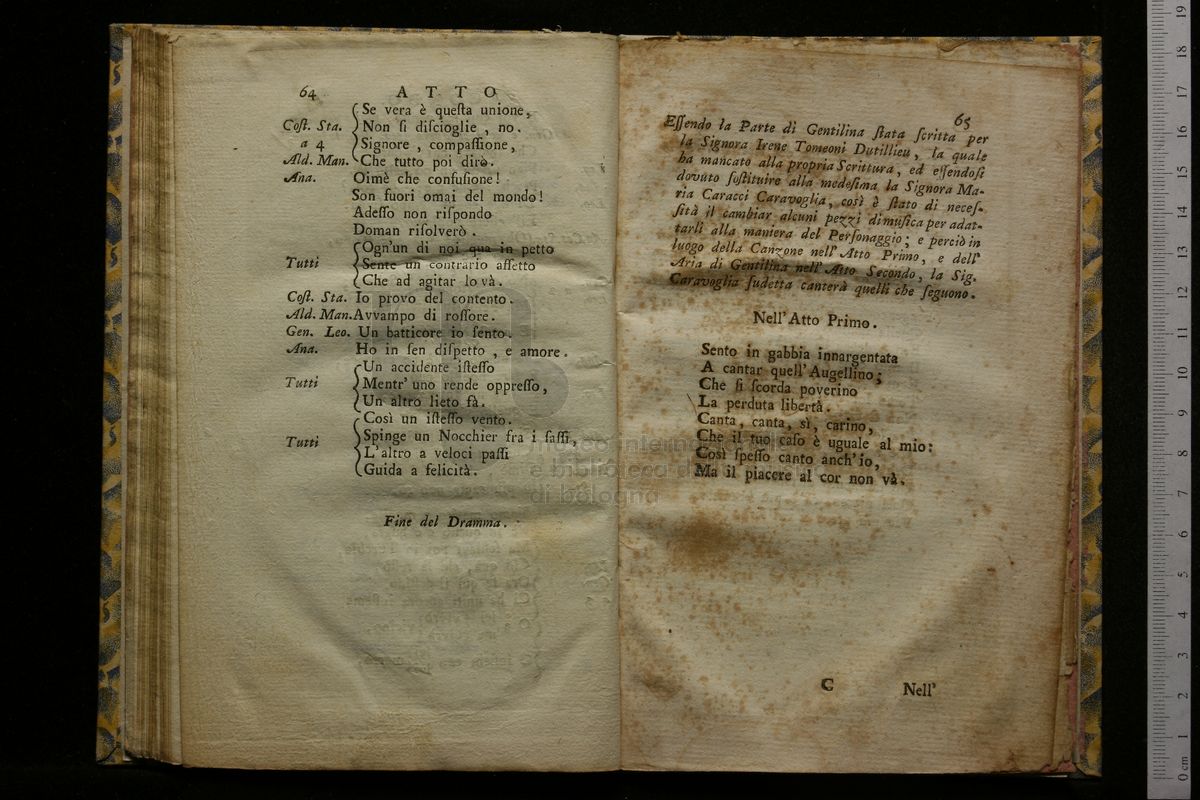 64 ATTO
Se vera è queſta unione,
Coſt. Sta. Non ſi diſcioglie , no.
a 4 Signore , compaſſione,
Ald. Man. Che tutto poi dirò.
Ana. Oimè che confuſione !
Son fuori omai del mondo !
Adeſſo non riſpondo
Doman riſolverò .
Ogn'un di noi qua in petto
Tutti Sente un contrario affetto
Che ad agitar lo và.
Coſt. Sta. Io provo del contento.
Ald. Man. Avvampo di roſſore.
Gen. Leo. Un batticore io ſento.
Ana. Ho in ſen diſpetto , e amore.
Un accidente iſteſſo
Tutti Mentr' uno rende oppreſſo,
Un altro lieto fà.
Così un iſteſſo vento.
Tutti Spinge un Nocchier fra i ſaſſi,
L'altro a veloci paſſi
Guida a felicità.
Fine del Dramma.
65
Eſſendo la Parte di Gentilina ſtata ſcritta per
la Signora Irene Tomeoni Dutillieu, la quale
ha mancato alla propria Scrittura, ed eſſendoſi
dovuto ſoſtituire alla medeſima la Signora Ma-
ria Caracci Caravoglia, così è ſtato di neceſ-
ſità il cambiar alcuni pezzi di muſica per adat-
tarli alla maniera del Perſonaggio; e perciò in
luogo della Canzone nell' Atto Primo, e dell'
Aria di Gentilina nell' Atto Secondo, la Sig.
Caravoglia ſudetta canterà quelli che ſeguono.
Nell'Atto Primo.
Sento in gabbia innargentata
A cantar quell'Augellino;
Che ſi ſcorda poverino
La perduta libertà.
Canta, canta, sì, carino,
Che il tuo caſo è uguale al mio:
Così ſpeſſo canto anch'io,
Ma il piacere al cor non và.
C Nell'
museo internazionale
e biblioteca della musica
di bologna